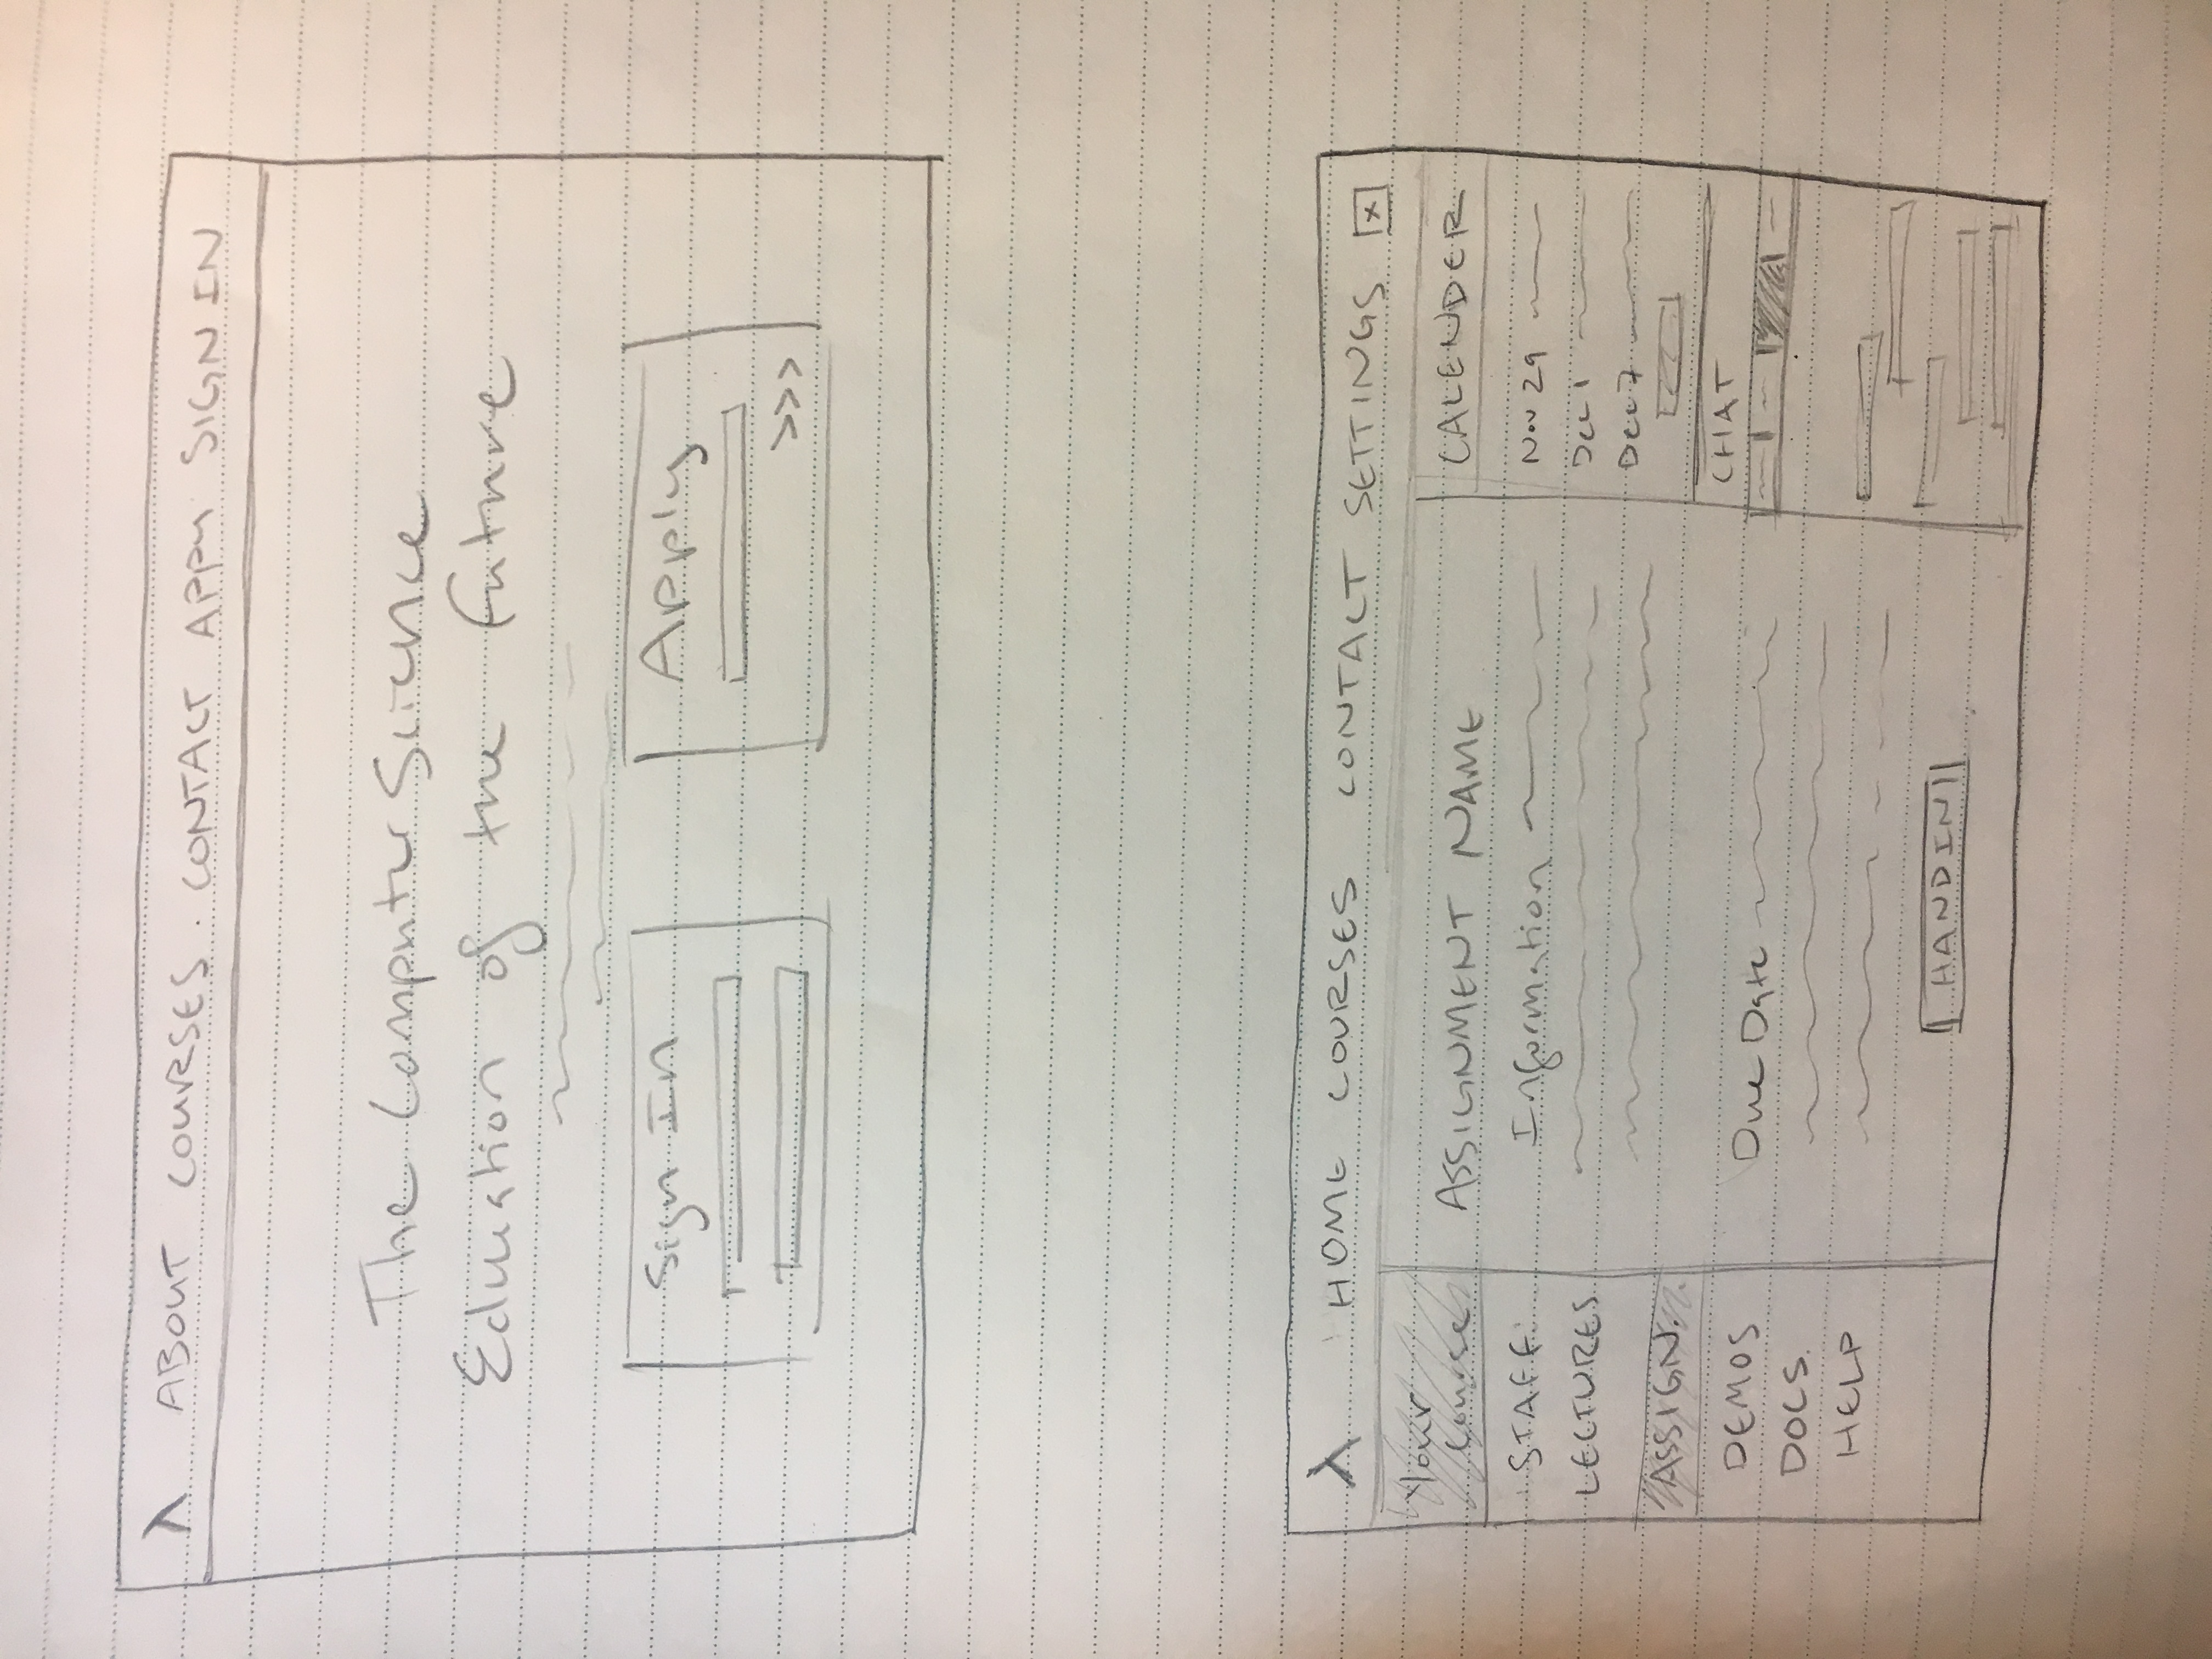 λ ABOUT COURSES CONTACT APPLY SIGN IN
The Computer Science
Education of the Future
Sign In
Apply
>>>
λ HOME COURSES CONTACT SETTINGS x
Your
Course
STAFF
LECTURES
ASSIGN.
DEMOS
DOCS
HELP
ASSIGNMENT NAME
Information
Due Date
HANDIN
CALENDER
Nov 29
Dec 1
Dec 7
CHAT